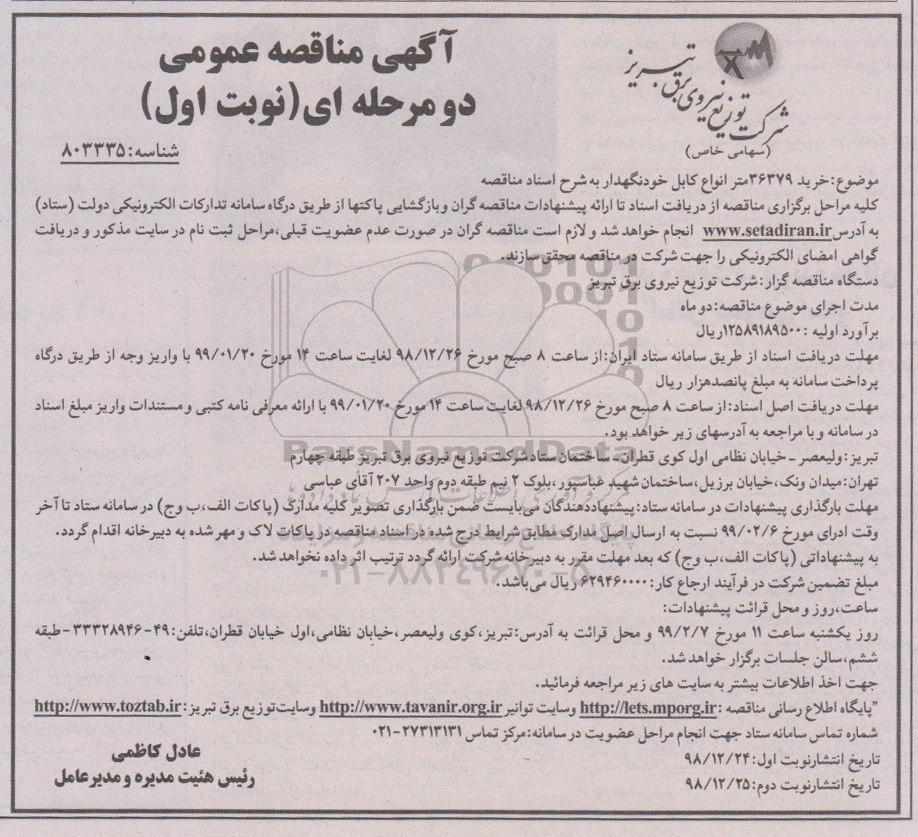 شرکت توزیع نیروی برق تبریز
(سهامی خاص)
آگهی مناقصه عمومی
دو مرحله ای (نوبت اول)
شناسه: ۸۰۳۳۳۵
موضوع: خرید ۳۶۳۷۹متر انواع کابل خودنگهدار به شرح اسناد مناقصه
کلیه مراحل برگزاری مناقصه از دریافت اسناد تا ارائه پیشنهادات مناقصه گران و بازگشایی پاکتها از طریق درگاه سامانه تدارکات الکترونیکی دولت (ستاد)
به آدرس www.setadiran.ir انجام خواهد شد و لازم است مناقصه گران در صورت عدم عضویت قبلی، مراحل ثبت نام در سایت مذکور و دریافت
گواهی امضای الکترونیکی را جهت شرکت در مناقصه محقق سازند.
دستگاه مناقصه گزار: شرکت توزیع نیروی برق تبریز
مدت اجرای موضوع مناقصه: دو ماه
برآورد اولیه : ۱۲۵۸۹۱۸۹۵۰۰ریال
مهلت دریافت اسناد از طریق سامانه ستاد ایران: از ساعت ۸ صبح مورخ ۹۸/۱۲/۲۶ لغایت ساعت ۱۴ مورخ ۹۹/۰۱/۲۰ با واریز وجه از طریق درگاه
پرداخت سامانه به مبلغ پانصدهزار ریال
مهلت دریافت اصل اسناد: از ساعت ۸ صبح مورخ ۹۸/۱۲/۲۶ لغایت ساعت ۱۴ مورخ ۹۹/۰۱/۲۰ با ارائه معرفی نامه کتبی و مستندات واریز مبلغ اسناد
در سامانه و با مراجعه به آدرسهای زیر خواهد بود.
تبریز: ولیعصر - خیابان نظامی اول کوی قطران - ساختمان ستاد شرکت توزیع نیروی برق تبریز طبقه چهارم
تهران: میدان ونک، خیابان برزیل، ساختمان شهید عباسپور، بلوک ۲ نیم طبقه دوم واحد ۲۰۷ آقای عباسی
مهلت بارگذاری پیشنهادات در سامانه ستاد: پیشنهاددهندگان می‌بایست ضمن بارگذاری تصویر کلیه مدارک (پاکات الف، ب وج) در سامانه ستاد تا آخر
وقت اداری مورخ ۹۹/۰۲/۶ نسبت به ارسال اصل مدارک مطابق شرایط درج شده در اسناد مناقصه در پاکات لاک و مهر شده به دبیرخانه اقدام گردد.
به پیشنهاداتی (پاکات الف، ب وج) که بعد مهلت مقرر به دبیرخانه شرکت ارائه گردد ترتیب اثر داده نخواهد شد.
مبلغ تضمین شرکت در فرآیند ارجاع کار: ۶۲۹۴۶۰۰۰۰ ریال می‌باشد.
ساعت، روز و محل قرائت پیشنهادات:
روز یکشنبه ساعت ۱۱ مورخ ۹۹/۲/۷ و محل قرائت به آدرس: تبریز، کوی ولیعصر، خیابان نظامی، اول خیابان قطران، تلفن: ۴۹-۳۳۳۲۸۹۴۶-طبقه
ششم، سالن جلسات برگزار خواهد شد.
جهت اخذ اطلاعات بیشتر به سایت های زیر مراجعه فرمائید.
"پایگاه اطلاع رسانی مناقصه : http://lets.mporg.ir وسایت توانیر http://www.tavanir.org.ir وسایت توزیع برق تبریز : http://www.toztab.ir
شماره تماس سامانه ستاد جهت انجام مراحل عضویت در سامانه: مرکز تماس ۲۷۳۱۳۱۳۱-۰۲۱
تاریخ انتشار نوبت اول: ۹۸/۱۲/۲۴
تاریخ انتشار نوبت دوم: ۹۸/۱۲/۲۵
عادل کاظمی
رئیس هئیت مدیره و مدیرعامل
ParsNamadData
۰۲۱-۸۸۳۴۹۶۷۰-۵